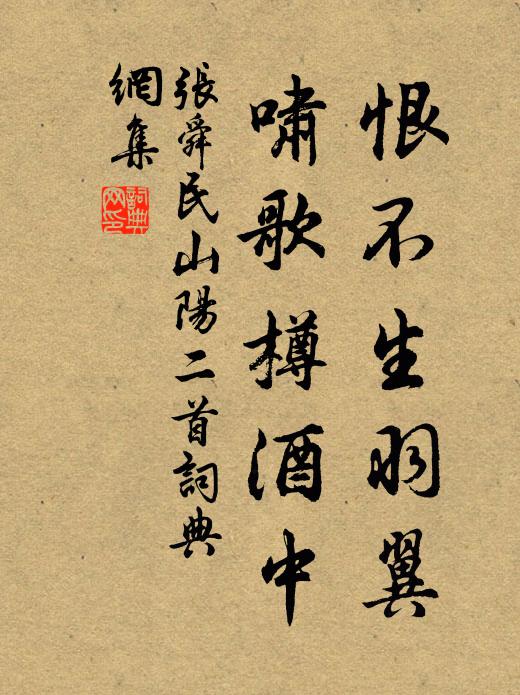 恨不生羽翼
嘯歌樽酒中
張舜民山陽二首詞典
網集
詞典
网印